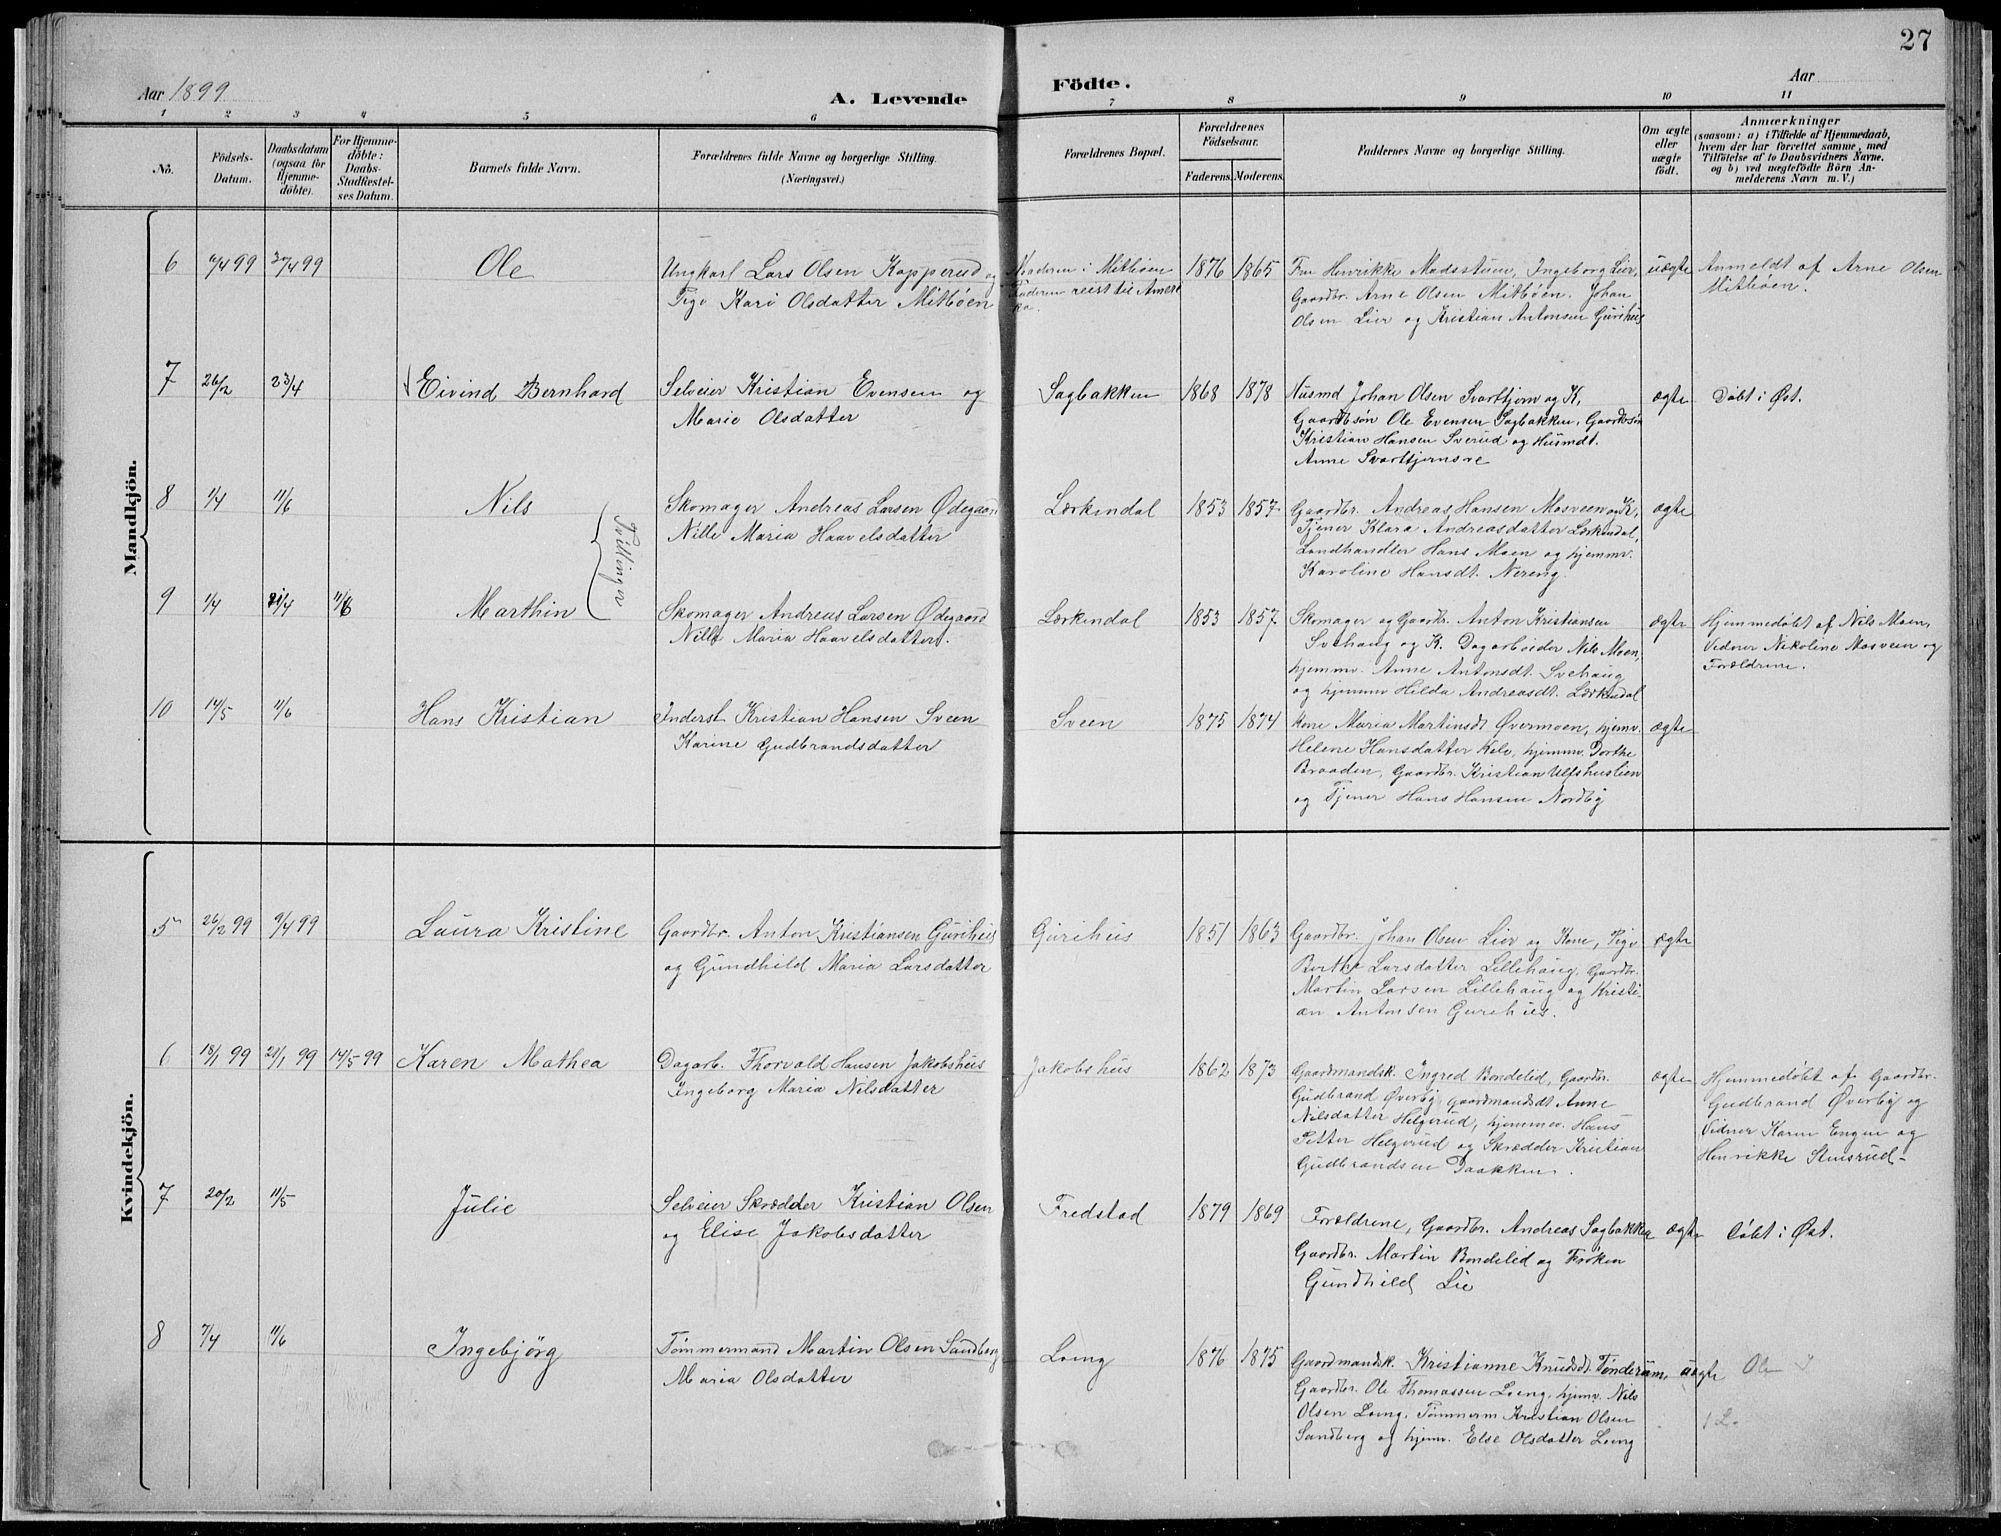 27
Aar 1899
A. Levende
Födte.
Aar
1 2 3 4 5 6 7 8 9 10 11
No.
Födsels-
Datum.
Daabsdatum
(ogsaa for
Hjemme-
döbte).
For Hjemme-
döbte:
Daabs-
Stadfæstel-
ses Datum.
Barnets fulde Navn.
Forældrenes fulde Navne og borgerlige Stilling.
(Næringsvei.)
Forældrenes Bopæl.
Forældrenes
Födselsaar.
Faderens. Moderens.
Faddernes Navne og borgerlige Stilling.
Om ægte
eller
uægte
födt.
Anmærkninger
(saasom: a) i Tilfælde af Hjemmedaab,
hvem der har forrettet samme, med
Tilföielse af to Daabsvidners Navne.
og b) ved uægtefödte Börn An-
melderens Navn m. V.)
Mandkjön.
6 11/4 99 30/4 99
Ole
Ungkarl Lars Olsen Kopperud og
Pige Kari Olsdatter Mitbøen
Moderen i Mitbøen
Faderen reist til Ameri
ka.
1876 1865
Fru Henrikke Madsstuen, Ingeborg Lier,
Gaardbr. Arne Olsen Mitbøen. Johan
Olsen Lier og Kristian Antonsen Gurihus
uægte
Anmeldt af Arne Olsen
Mitbøen.
7 26/2 23/4
Eivind Bernhard
Selveier Kristian Evensen og
Marie Olsdatter
Sagbakken
1868 1878
Husmd Johan Olsen Svarttjern og K,
Gaardbsøn Ole Evensen Sagbakken, Gaardbsøn
Kristian Hansen Sverud og Husmdt.
Anne Svarttjernsøe
ægte
Døbt i Øst.
8 1/4 11/6
Nils
Tvillinger
Skomager Andreas Larsen Ødegaard
Nille Maria Haavelsdatter
Lærkendal
1853 1857
Gaardbr. Andreas Hansen Mosveen og K,
Tjener Klara Andreasdatter Lærkendal,
Landhandler Hans Moen og hjemmv.
Karoline Hansdt. Nereng.
ægte
9 1/4 21/4 11/6
Marthin
Skomager Andreas Larsen Ødegaard
Nille Maria Haavelsdatter.
Lærkendal
1853 1857
Skomager og Gaardbr. Anton Kristiansen
Svehaug og K. Dagarbeider Nils Moen,
hjemmv. Anne Antonsdt. Svehaug
og hjemmv Hilda Andreasdt. Lærkendal
ægte
Hjemmedøbt af Nils Moen,
Vidner Nikoline Mosveen og
Forældrene.
10 14/5 11/6
Hans Kristian
Inderst Kristian Hansen Sveen
Karine Gudbrandsdatter
Sveen
1875 1874
Kone Maria Martinsdt Øvermoen, hjemv.
Helene Hansdatter Kelv, hjemmv. Dorthe
Braaden, Gaardbr. Kristian Ulfshuslien
og Tjener Hans Hansen Nordby
ægte
Kvindekjön.
5 26/2 99 9/4 99
Laura Kristine
Gaardbr. Anton Kristiansen Gurihus
og Gundhild Maria Larsdatter
Gurihus
1851 1863
Gaardbr. Johan Olsen Lier og Kone, Pige
Berthe Larsdatter Lillehaug, Gaardbr.
Martin Larsen Lillehaug og Kristi-
an Antonsen Gurihus.
ægte
6 18/1 99 21/1 99 14/5 99
Karen Mathea
Dagarb. Thorvald Hansen Jakobshus
Ingeborg Maria Nilsdatter
Jakobshus
1862 1873
Gaardmandsk. Ingred Bondelid, Gaardbr.
Gudbrand Øverby, Gaardmandsdt Anne
Nilsdatter Helgerud, hjemmev. Hans
Petter Helgerud og Skrædder Kristian
Gudbrandsen Baakken.
ægte
Hjemmedøbt af Gaardbr.
Gudbrand Øverby og
Vidner Karen Engen og
Henrikke Stensrud-
7 20/2 11/5
Julie
Selveier Skrædder Kristian Olsen
og Elise Jakobsdatter
Fredstad
1879 1869
Forældrene, Gaardbr. Andreas Sagbakken
Gaardbr. Martin Bondelid og Frøken
Gundhild Lie
ægte
Døbt i Øst.
8 7/4 11/6
Ingebjørg
Tømmermand Martin Olsen Sandberg
Maria Olsdatter
Loeng
1876 1875
Gaardmandsk. Kristianne Knudsdt. Tønderum,
Gaardbr. Ole Thomassen Loeng, hjemv. Nils
Olsen Loeng, Tømmerm Kristian Olsen
Sandberg og hjemv. Else Olsdatter Loeng
uægte
Ole